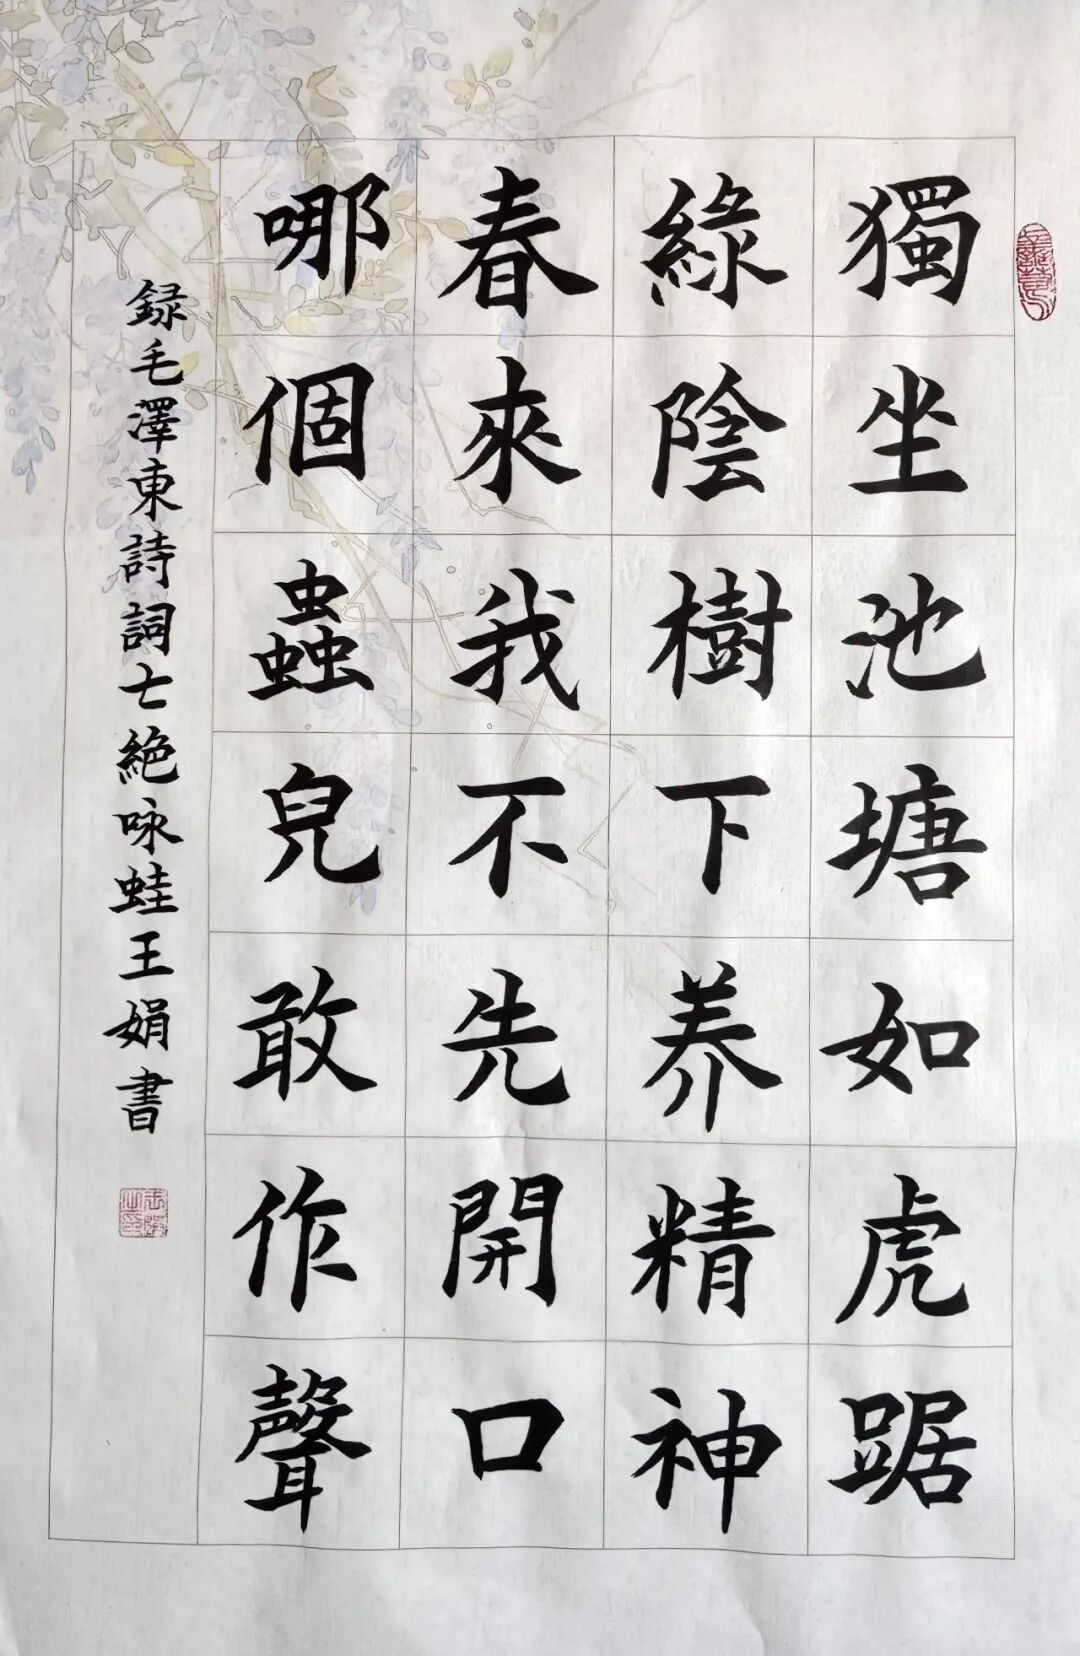 獨坐池塘如虎踞
綠陰樹下养精神
春來我不先開口
哪個蟲兒敢作聲
録毛澤東詩詞七絶咏蛙王娟書